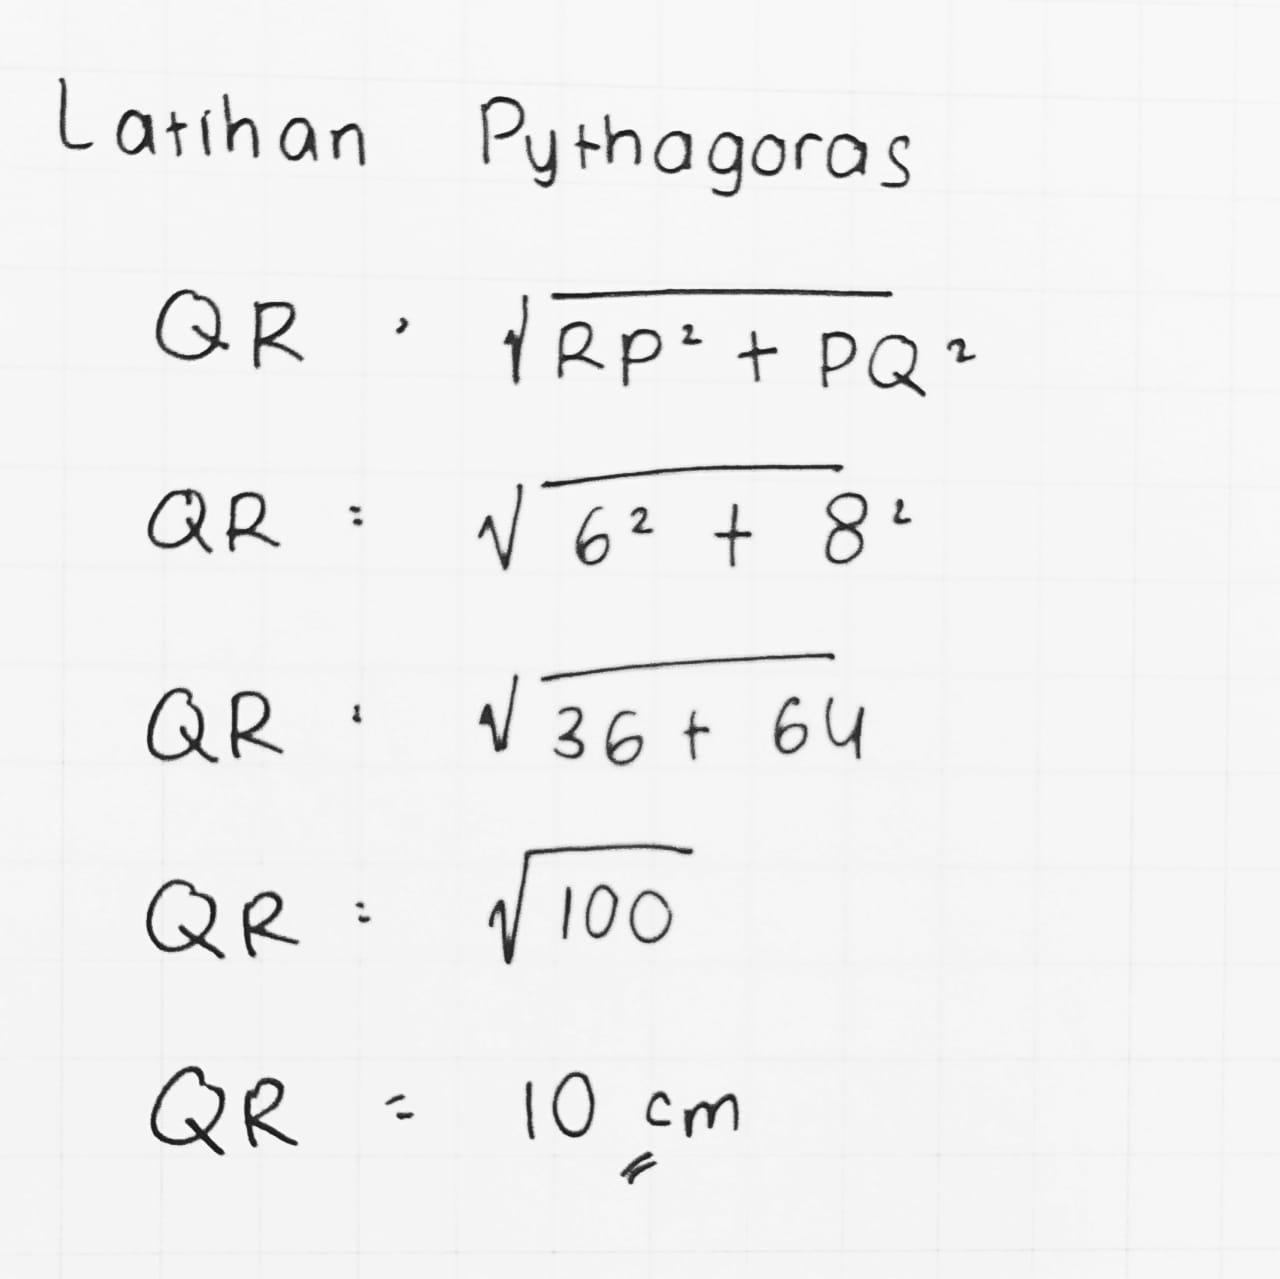 Latihan Pythagoras
QR = √RP² + PQ²
QR = √6² + 8²
QR = √36 + 64
QR = √100
QR = 10 cm